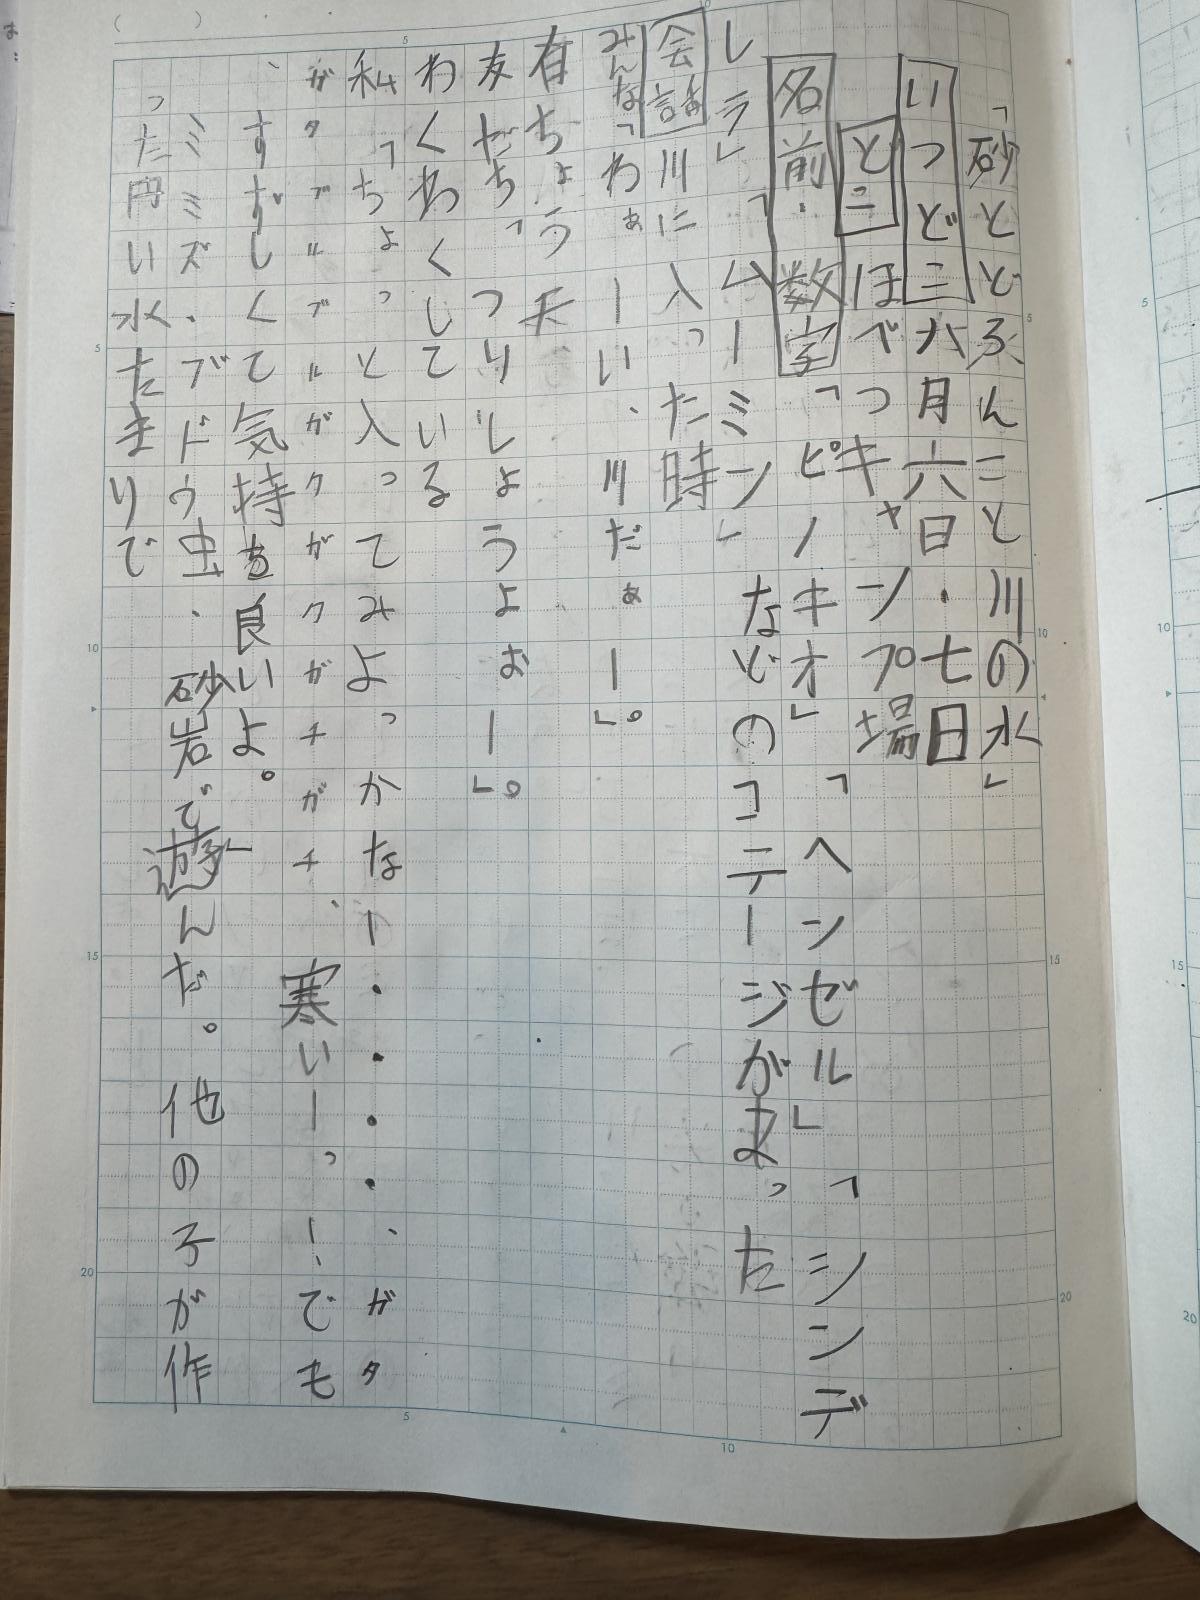 「砂とどろんこと川の水」
いつどこ六月六日・七日
とこほべつキャンプ場
名前・数字「ピノキオ」「ヘンゼル」「シンデ
レラ」「ムーミン」などのコテージがあった
会話川に入った時
みんな「わぁーい、川だぁー」。
有ちょう天
友だち「つりしようよおー」。
わくわくしている
私「ちょっと入ってみよっかなー・・・・、ガタ
ガタブルブルガクガクガチガチ、寒いーっ!でも
、すずしくて気持ち良いよ。」
ミミズ、ブドウ虫、砂岩で遊んだ。他の子が作
った円い水たまりで
5
10
15
20
5
10
5
10
15
20
5
10
15
20